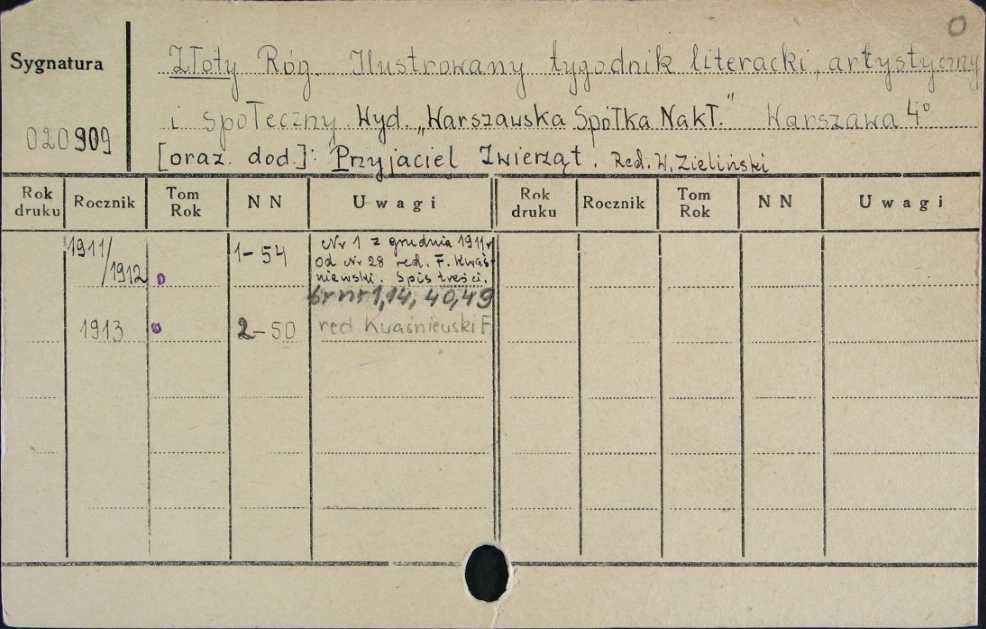 0
Sygnatura
Złoty Róg. Ilustrowany tygodnik literacki, artystyczny
020909
i społeczny. Wyd. „Warszawska Spółka Nakł." Warszawa 4º
[oraz dod.]: Przyjaciel Zwierząt. Red. W. Zieliński
Rok druku Rocznik Tom Rok NN Uwagi Rok druku Rocznik Tom Rok NN Uwagi
1911/1912 1-54 Nr 1 z grudnia 1911 r
od Nr 28 red. F. Kwaś-
niewski. Spis treści.
br nr 1,14, 40,49
1913 2-50 red Kwaśniewski F